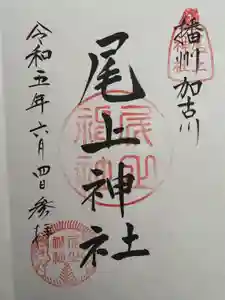 播州加古川
尾上神社
令和五年六月四日参拝